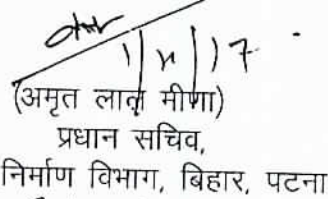 (अमृत लाल मीणा)
प्रधान सचिव,
निर्माण विभाग, बिहार, पटना